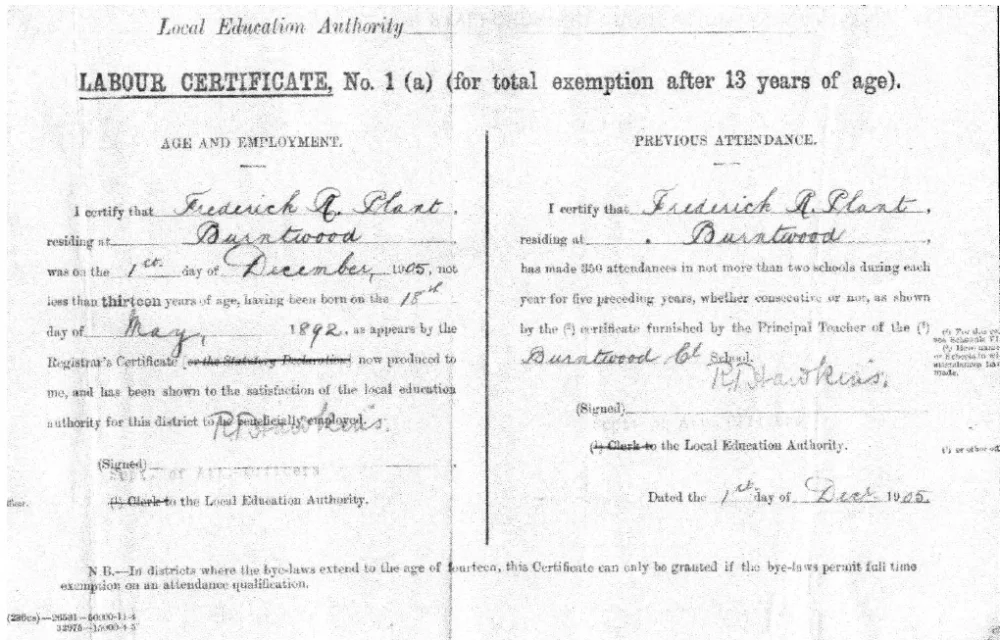 Local Education Authority
LABOUR CERTIFICATE, No. 1 (a) (for total exemption after 13 years of age).
AGE AND EMPLOYMENT.
I certify that Frederick R. Plant,
residing at Burntwood,
was on the 1st. day of December, 1905, not
less than thirteen years of age, having been born on the 18th
day of May, 1892, as appears by the
Registrar's Certificate [or the Statutory Declaration] now produced to
me, and has been shown to the satisfaction of the local education
authority for this district to be beneficially employed.
Hawkins.
(Signed)
Supt. of Att. Officers
(¹) Clerk to the Local Education Authority.
PREVIOUS ATTENDANCE.
I certify that Frederick R. Plant,
residing at Burntwood,
has made 350 attendances in not more than two schools during each
year for five preceding years, whether consecutive or not, as shown
by the (²) certificate furnished by the Principal Teacher of the (³)
Burntwood School.
Hawkins.
(Signed)
(¹) Clerk to the Local Education Authority.
Dated the 1st day of Decr 1905.
(¹) or other
N.B.—In districts where the bye-laws extend to the age of fourteen, this Certificate can only be granted if the bye-laws permit full time
exemption on an attendance qualification.